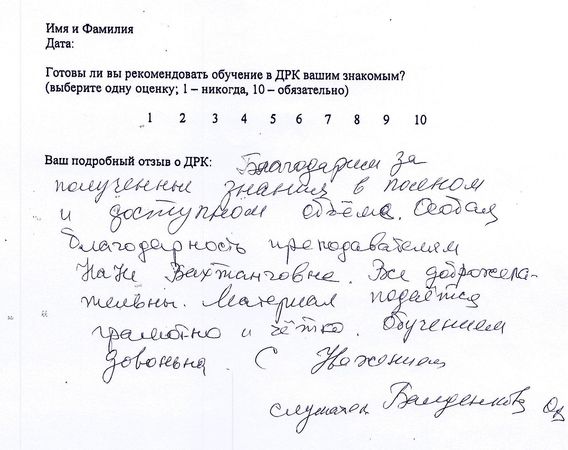 Имя и Фамилия
Дата:
Готовы ли вы рекомендовать обучение в ДРК вашим знакомым?
(выберите одну оценку; 1 – никогда, 10 – обязательно)
1 2 3 4 5 6 7 8 9 10
Ваш подробный отзыв о ДРК: Благодарим за
полученные знания в полном
и доступном объёме. Особая
благодарность преподавателям
Нане Вахтанговне. Все доброжела-
тельны. Материал подаётся
грамотно и чётко. Обучением
довольна. С Уважением
слушатель